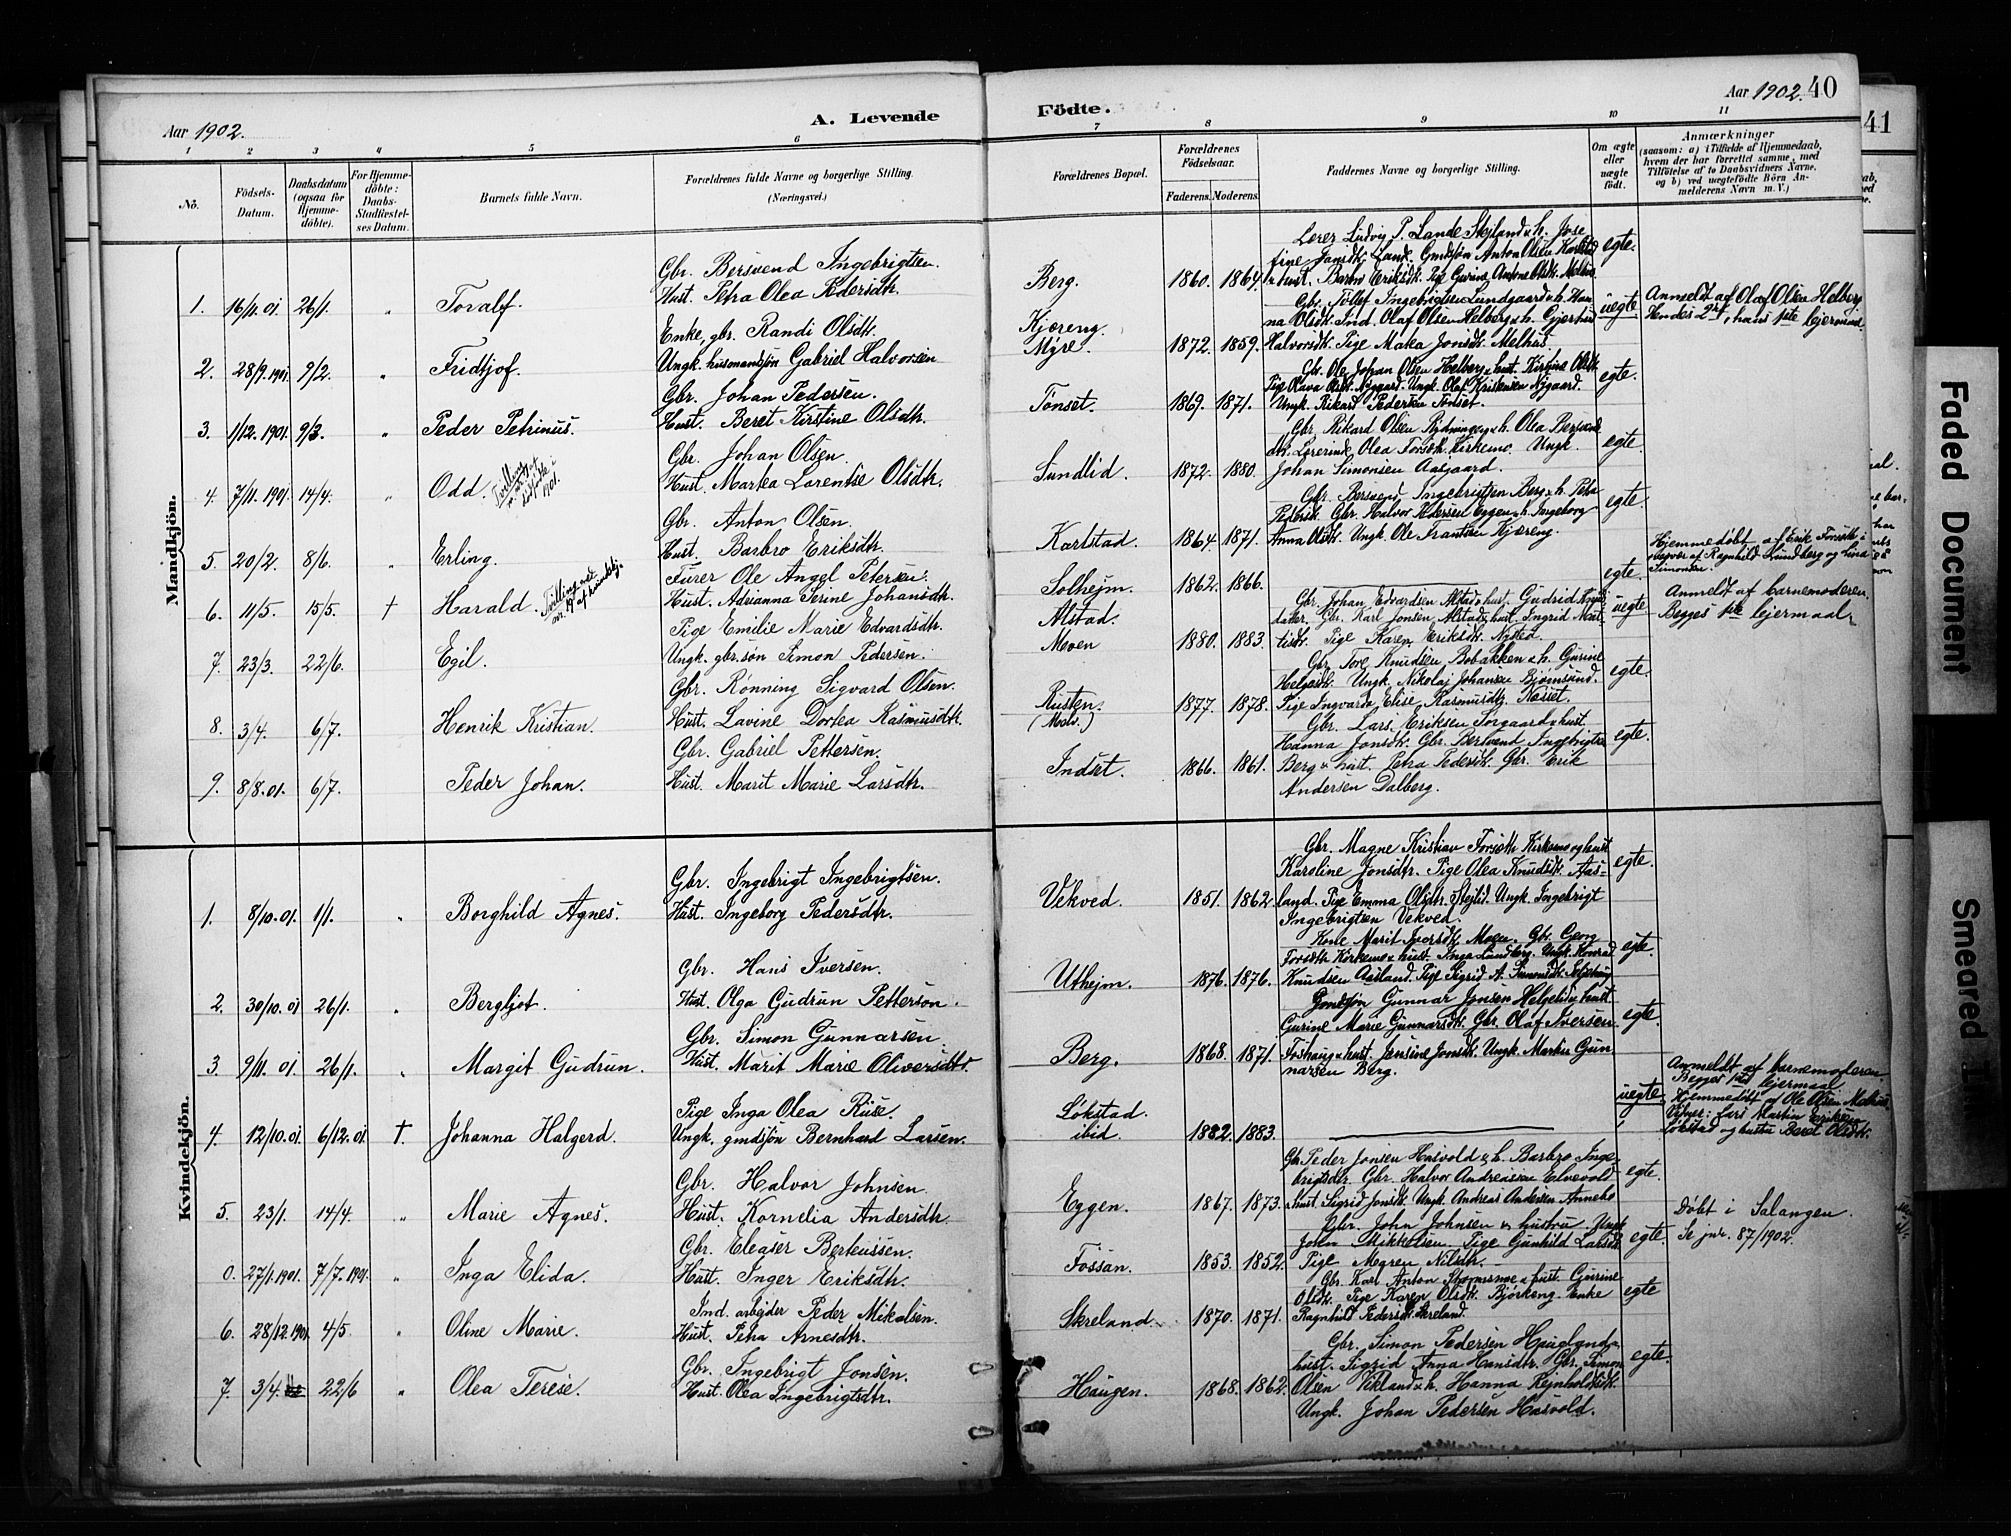 Aar 1902.
A. Levende
Födte.
Aar 1902.
40
41
1
2
3
4
5
6
7
8
9
10
11
No.
Födsels-
Datum.
Daabsdatum
(ogsaa for
Hjemme-
döbte).
For Hjemme-
döbte:
Daabs-
Stadfæstel-
ses Datum.
Barnets fulde Navn.
Forældrenes fulde Navne og borgerlige Stilling.
(Næringsvei.)
Forældrenes Bopæl.
Forældrenes
Födselsaar.
Faderens.
Moderens.
Faddernes Navne og borgerlige Stilling.
Om ægte
eller
uægte
födt.
Anmærkninger
(saasom: a) i Tilfælde af Hjemmedaab,
hvem der har forrettet samme, med
Tilföielse af to Daabsvidners Navne,
og b) ved uægtefödte Börn An-
melderens Navn m. V.)
Mandkjön.
1. 16/11.01. 26/1. Toralf
Gbr. Bersvend Ingebrigtsen.
Hust. Petra Olea Pedersdtr.
Berg. 1860. 1864.
Lærer Ludvig P. Lande Stejland & h. Jose
fine Jonsdtr. Land. Gmdsøn Anton Olsen Karlstad
& hust. Barbro Eriksdtr. Pige Gurine Antone Olsdtr. Melhus
egte.
2. 28/9.1901. 9/2. " Fridtjof.
Enke, gbr. Randi Olsdtr.
Ungk. husmandsøn Gabriel Halvorsen
Kjæreng.
Myre. 1872. 1859.
Gbr. Tollef Ingebrigtsen Lundgaard & h. Han
na Olsdtr. Ind. Olaf Olsen Helberg & h. Gjertrud
Halvorsdtr. Pige Maka Jonsdtr. Melhus.
uegte
Anmeldt af Olaf Olsen Helberg
Hendes 2det, hans 1ste lejermaal.
3. 1/12.1901. 9/3. " Peder Petrinus.
Gbr. Johan Pedersen.
Hust. Beret Kirstine Olsdtr.
Tønset. 1869. 1871.
Gbr. Ole Johan Olsen Helberg & hust. Kirstine Olsdtr.
Pige Olava Olsdtr. Nygaard. Ungk. Olaf Kristensen Nygaard.
Ungk. Rikard Pedersen Tønset.
egte.
4. 7/11.1901. 14/4. " Odd.
Gbr. Johan Olsen.
Hust. Martea Lorentse Olsdtr.
Sundlid. 1872. 1880.
Gbr. Rikard Olsen Rydningen & h. Olea Bersvends
dtr. Lærerinde Olea Forseth Kirkemo. Ungk.
Johan Simonsen Aasgaard.
egte.
5. 20/2. 8/6. " Erling.
Gbr. Anton Olsen.
Hust. Barbro Eriksdtr.
Karlstad. 1864. 1871.
Gbr. Bersvend Ingebrigtsen Berg & h. Petra
Pedersdtr. Gbr. Halvor Pedersen Eggen & h. Ingeborg
Anna Olsdtr. Ungk. Ole Frantsen Kjæreng.
egte.
6. 11/5. 15/5. † Harald. Tvilling med
nr. 19 af kvindekj.
Furer Ole Angel Petersen.
Hust. Adrianna Serine Johansdtr.
Solhejm. 1862. 1866.
egte.
Hjemmedøbt af Erik Forseth i
nærvær af Ragnhild Lundberg og Lina
Simonsen.
7. 23/3. 22/6. Egil.
Pige Emilie Marie Edvardsdtr.
Ungk. gbr.søn Simon Pedersen.
Alstad.
Moen 1880. 1883.
Gbr. Johan Edvardsen Alstad & hust. Gudrid Knuds
datter. Gbr. Karl Jonsen Alstad & hust. Ingrid Mor-
tisdtr. Pige Karen Eriksdtr. Nysted.
uegte
Anmeldt af barnemoderen.
Begges 1ste lejermaal.
8. 3/4. 6/7. Henrik Kristian.
Gbr. Rønning Sigvard Olsen.
Hust. Lavine Dortea Rasmusdtr.
Rusten.
(Molv.) 1877. 1878.
Gbr. Tore Knudsen Bobakken & h. Gurine
Helgesdtr. Ungk. Nikolaj Johansen Bjørnsund.
Pige Ingvarda Elise Rasmusdtr. Næset.
egte.
9. 8/8.01. 6/7. Peder Johan.
Gbr. Gabriel Pettersen.
Hust. Marit Marie Larsdtr.
Indset. 1866. 1861.
Gbr. Lars Eriksen Sørgaard & hust.
Hanna Jonsdtr. Gbr. Bersvend Ingebrigtsen
Berg & hust. Petra Pedersdtr. Gbr. Erik
Andersen Dalberg.
egte.
Kvindekjön.
1. 8/10.01. 1/1. " Borghild Agnes.
Gbr. Ingebrigt Ingebrigtsen.
Hust. Ingeborg Pedersdtr.
Vekved. 1851. 1862
Gbr. Magne Kristian Forseth Kirkemo og hust
Karoline Jonsdtr. Pige Olea Knudsdtr. Aas-
land. Pige Emma Olsdtr. Stejlid. Ungk. Ingebrigt
Ingebrigtsen Vekved.
egte.
2. 30/10.01 26/1. " Bergljot.
Gbr. Hans Iversen.
Hust. Olga Gudrun Petterson.
Uthejm. 1876. 1876.
Kone Marit Iversdtr. Moen. Gbr. Georg
Forseth Kirkemo & hust. Inga Lundberg. Ungk. Konrad
Knudsen Aasland. Pige Sigrid A. Simonsdtr.
egte.
3. 9/11.01. 26/1. " Margit Gudrun.
Gbr. Simon Gunnarsen.
Hust. Marit Marie Oliversdtr.
Berg. 1868. 1871.
Gmdsøn Gunnar Jonsen Helgelid & hust
Gurine Marie Gunnarsdtr. Gbr. Olaf Iversen
Foshaug & hust. Jensine Jonsdtr. Ungk. Martin Gun-
narsen Berg.
egte.
4. 12/10.01. 6/12.01 †. Johanna Halgerd.
Pige Inga Olea Ruse.
Ungk. gmdsøn Bernhard Larsen.
Løkstad.
ibid. 1882. 1883.
uegte
Anmeldt af barnemoderen.
Begges 1ste lejermaal
Hjemmedøbt af Ole Olsen Melhus
Vidner: Lars Martin Eriksen
Løkstad og hustru Beret Olsdtr.
5. 23/1. 14/4. " Marie Agnes.
Gbr. Halvor Johnsen
Hust. Kornelia Andersdtr.
Eggen. 1867. 1873.
Gbr. Peder Jonsen Hasvold & h. Barbro Inge-
brigtsdtr. Gbr. Halvor Andreassen Elvevold
& hust. Sigrid Jonsdtr. Ungk. Andreas Andersen Annebo
egte.
0. 27/1.1901. 7/7.1901. " Inga Elida.
Gbr. Eleaser Berteussen.
Hust. Inger Eriksdtr.
Fossan. 1853. 1852.
Gbr. John Johnsen & hustru. Ungk
John Mikkelsen. Pige Gunhild Larsdtr
Pige Megren Nilsdtr.
egte.
Døbt i Salangen.
Se jnr. 87/1902.
6. 28/12.1901. 4/5. " Oline Marie.
Ind. arbejder Peder Mikalsen.
Hust. Petra Arnesdtr.
Skreland. 1870. 1871.
Gbr. Karl Anton & hust. Gurine
Olsdtr. Pige Karen Olsdtr. Bjørkeng. Enke
Ragnhild Pedersdtr. Skreland.
egte
7. 3/4. 22/6 " Olea Terese.
Gbr. Ingebrigt Jonsen.
Hust. Olea Ingebrigtsdtr.
Haugen. 1868. 1862.
Gbr. Simon Pedersen
hust. Sigrid Anna Hansdtr. Gbr. Simon
Olsen Vikland & h. Hanna Rejnholdsdtr.
Ungk. Johan Pedersen Hasvold.
egte.
Faded Document
Smeared